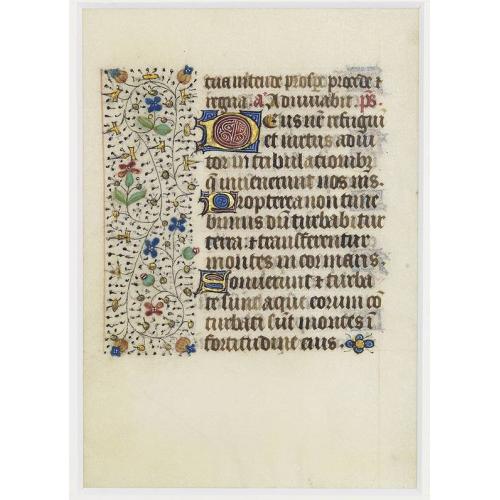 tua intende prospe procede ⁊
regna. a᷑ Adiuuabit. ps.
Deus nr̄ refugiū
et uirtus adiu
tor in tribulationibz
q̄ inuenerunt nos nis.
Propterea non time
bimus dū turbabitur
terra: ⁊ transferentur
montes in cor maris.
Sonuerunt ⁊ turba
te sunt aque eorum cō
turbati sūt montes ī
fortitudine eius.